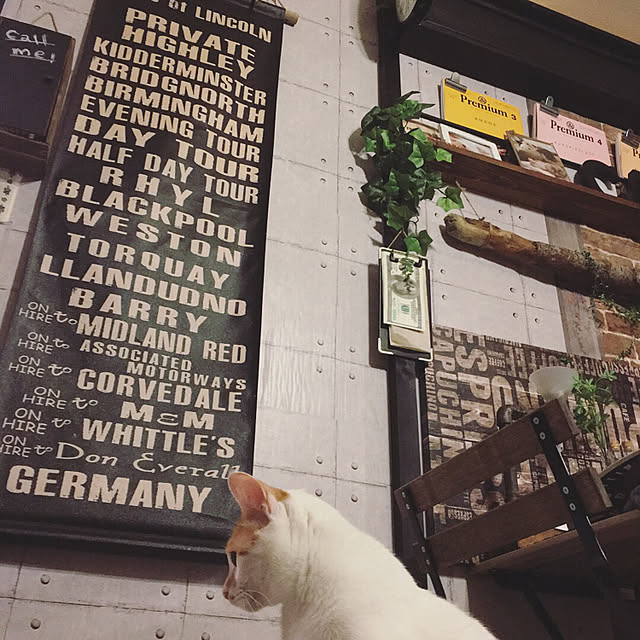 OF LINCOLN
PRIVATE
HIGHLEY
KIDDERMINSTER
BRIDGNORTH
BIRMINGHAM
EVENING TOUR
DAY TOUR
HALF DAY TOUR
RHYL
BLACKPOOL
WESTON
TORQUAY
LLANDUDNO
BARRY
ON HIRE to MIDLAND RED
ON HIRE to ASSOCIATED MOTORWAYS
ON HIRE to CORVEDALE
ON HIRE to M&M
ON HIRE to WHITTLE'S
ON HIRE to Don Everall
GERMANY
Call
me!
Premium 3
Premium 4